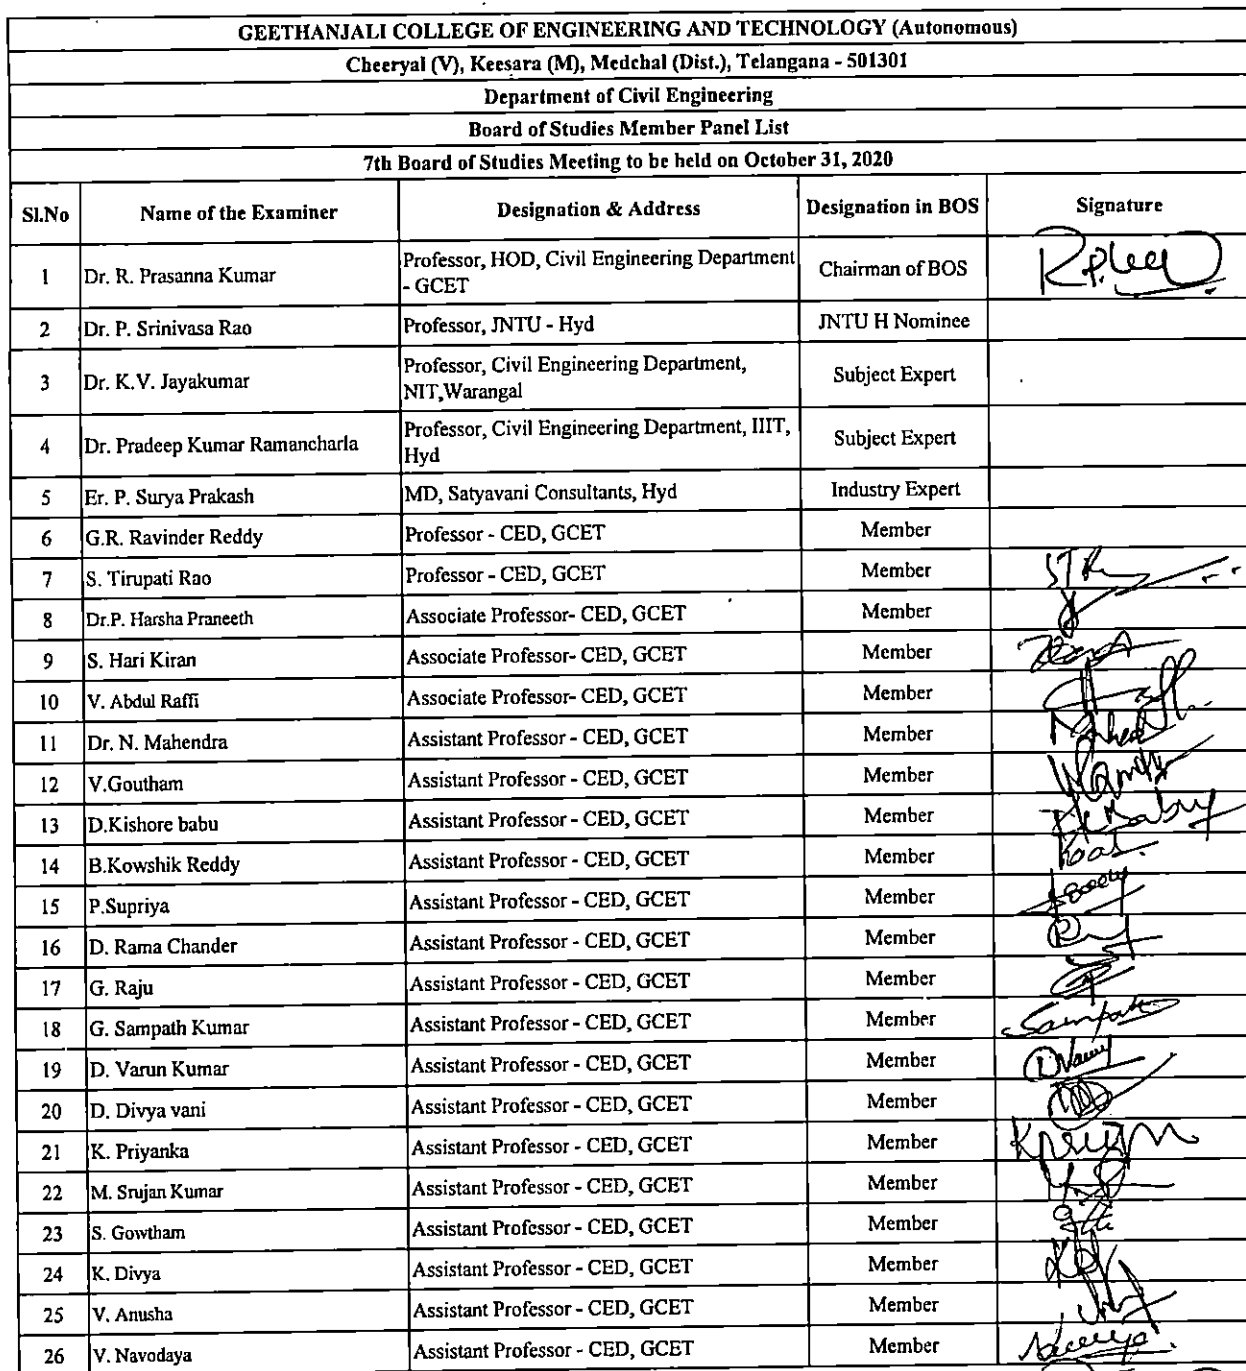 GEETHANJALI COLLEGE OF ENGINEERING AND TECHNOLOGY (Autonomous)
Cheeryal (V), Keesara (M), Medchal (Dist.), Telangana - 501301
Department of Civil Engineering
Board of Studies Member Panel List
7th Board of Studies Meeting to be held on October 31, 2020
Sl.No Name of the Examiner Designation & Address Designation in BOS Signature
1 Dr. R. Prasanna Kumar Professor, HOD, Civil Engineering Department - GCET Chairman of BOS
2 Dr. P. Srinivasa Rao Professor, JNTU - Hyd JNTU H Nominee
3 Dr. K.V. Jayakumar Professor, Civil Engineering Department, NIT,Warangal Subject Expert
4 Dr. Pradeep Kumar Ramancharla Professor, Civil Engineering Department, IIIT, Hyd Subject Expert
5 Er. P. Surya Prakash MD, Satyavani Consultants, Hyd Industry Expert
6 G.R. Ravinder Reddy Professor - CED, GCET Member
7 S. Tirupati Rao Professor - CED, GCET Member
8 Dr.P. Harsha Praneeth Associate Professor- CED, GCET Member
9 S. Hari Kiran Associate Professor- CED, GCET Member
10 V. Abdul Raffi Associate Professor- CED, GCET Member
11 Dr. N. Mahendra Assistant Professor - CED, GCET Member
12 V.Goutham Assistant Professor - CED, GCET Member
13 D.Kishore babu Assistant Professor - CED, GCET Member
14 B.Kowshik Reddy Assistant Professor - CED, GCET Member
15 P.Supriya Assistant Professor - CED, GCET Member
16 D. Rama Chander Assistant Professor - CED, GCET Member
17 G. Raju Assistant Professor - CED, GCET Member
18 G. Sampath Kumar Assistant Professor - CED, GCET Member Sampath
19 D. Varun Kumar Assistant Professor - CED, GCET Member
20 D. Divya vani Assistant Professor - CED, GCET Member
21 K. Priyanka Assistant Professor - CED, GCET Member
22 M. Srujan Kumar Assistant Professor - CED, GCET Member
23 S. Gowtham Assistant Professor - CED, GCET Member
24 K. Divya Assistant Professor - CED, GCET Member
25 V. Anusha Assistant Professor - CED, GCET Member
26 V. Navodaya Assistant Professor - CED, GCET Member